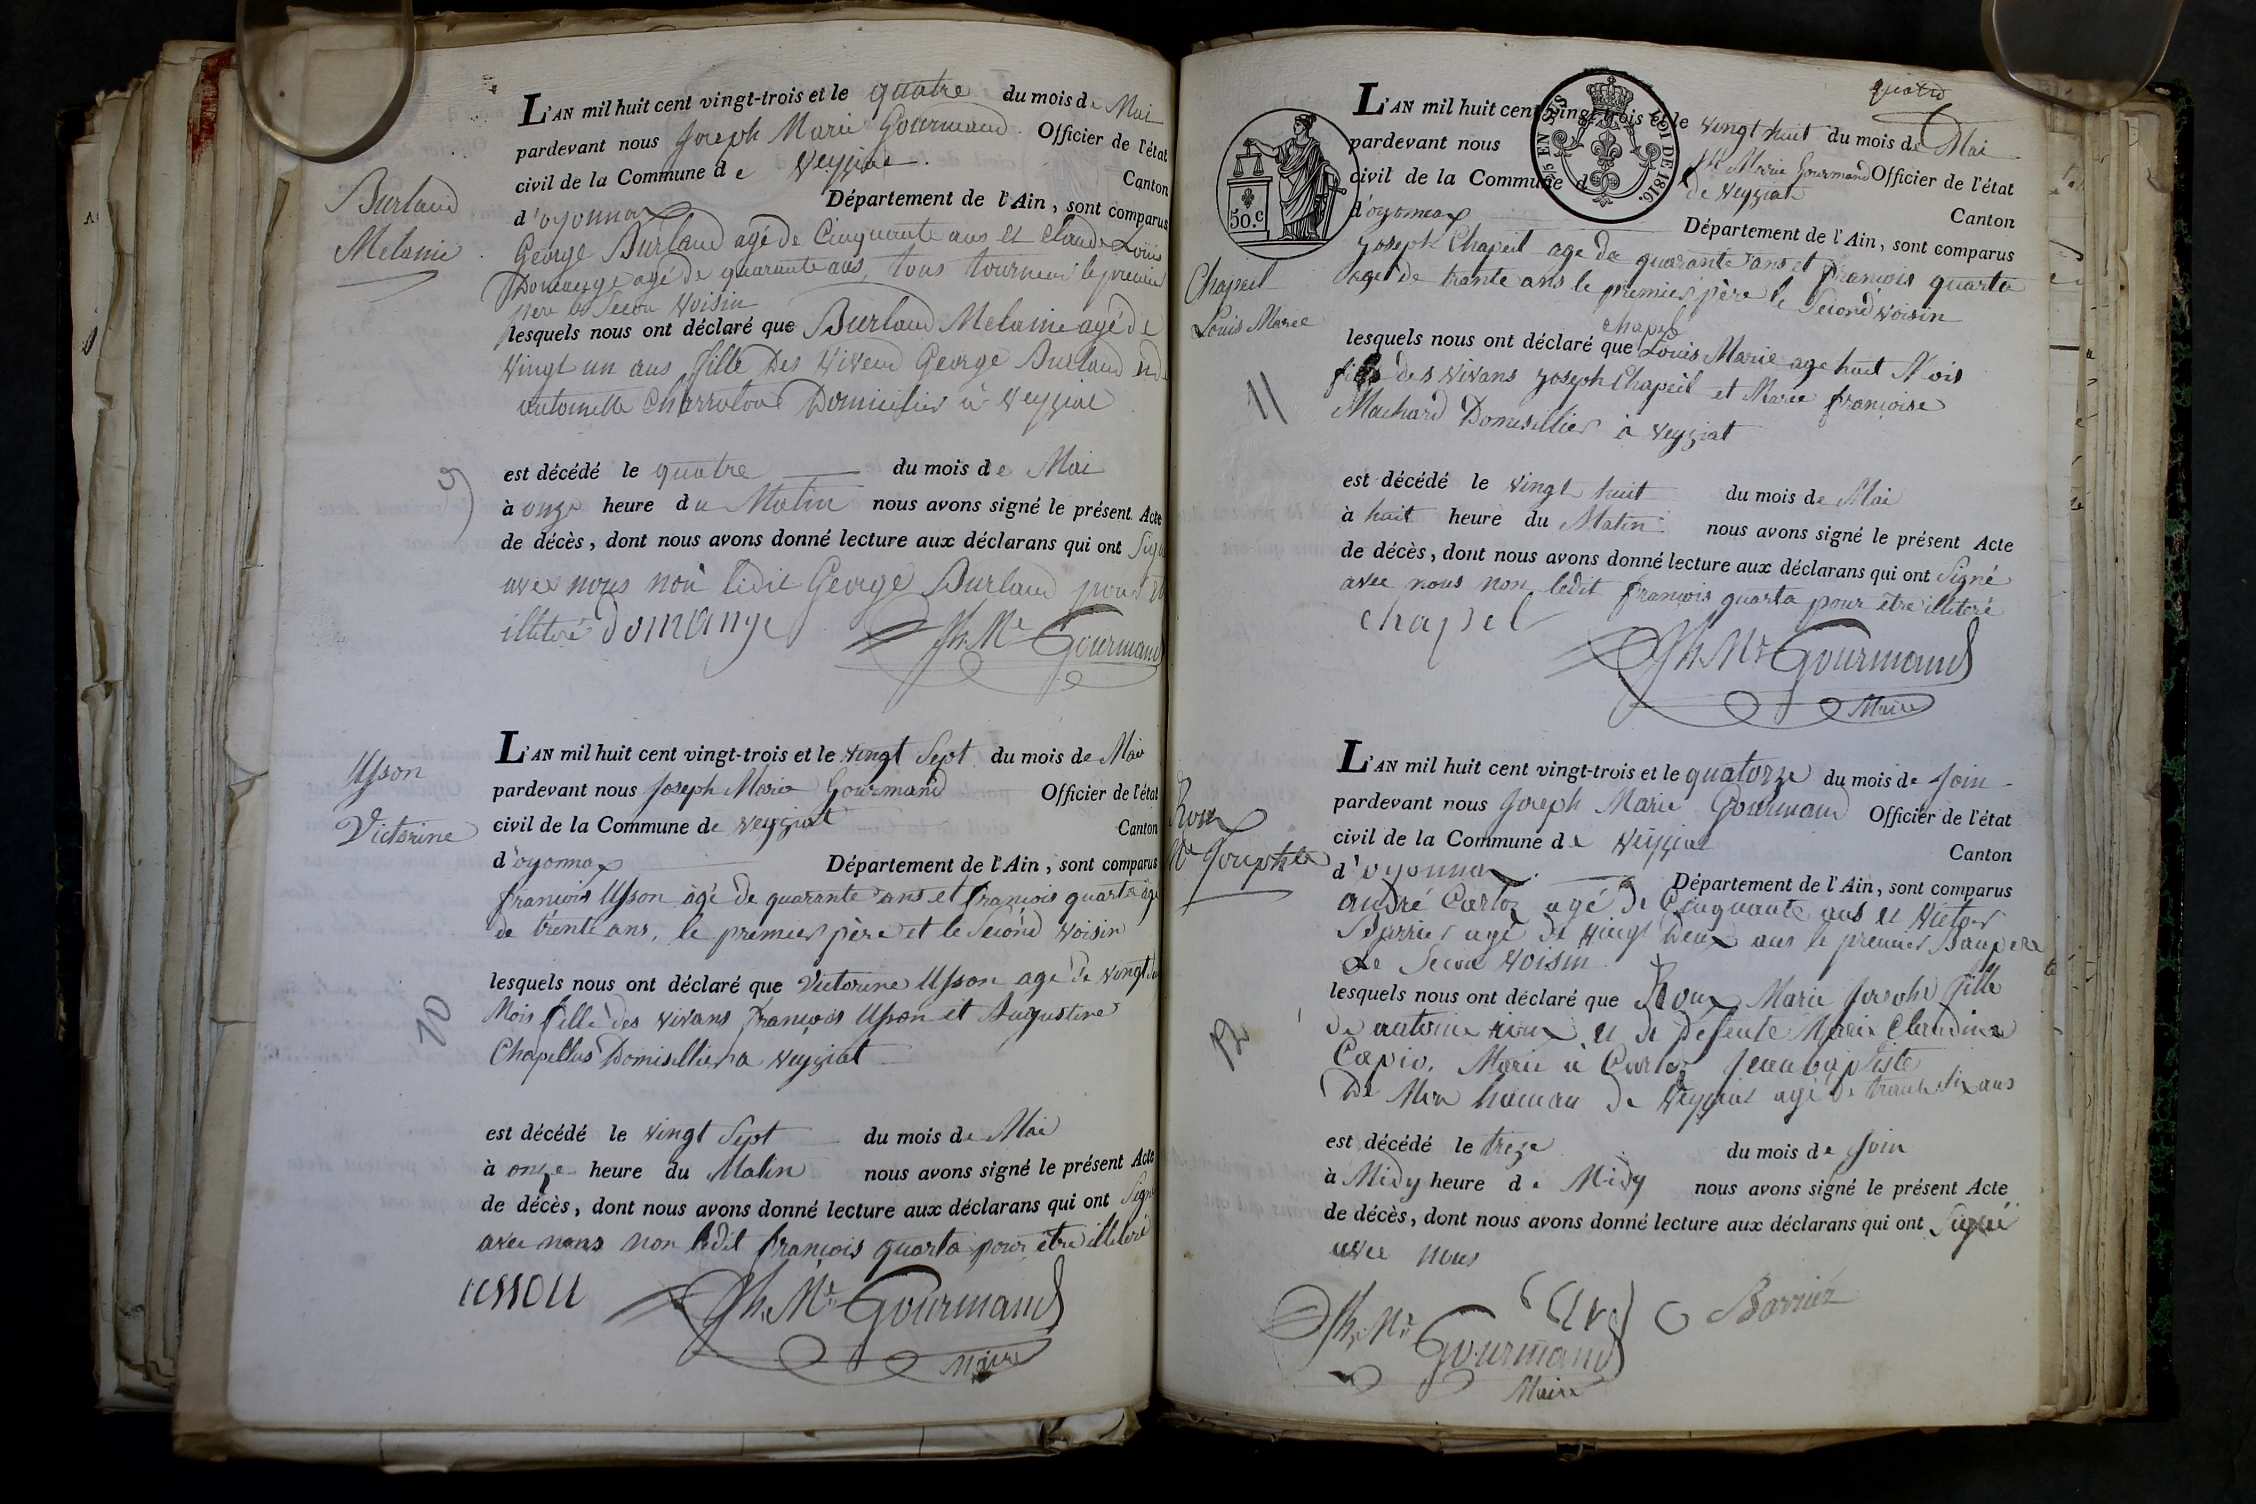 Burland
Melanie
9
L'AN mil huit cent vingt-trois et le quatre du mois de Mai
pardevant nous Joseph Marie Gourmand Officier de l'état
civil de la Commune de Veyziat Canton
d'oyonnax Département de l'Ain, sont comparus
George Burland agé de Cinquante ans et Claude Louis
Domenge agé de quarante ans, tous tourneur le premier
père le Secon voisin
lesquels nous ont déclaré que Burland Melanie agé de
vingt un ans fille Des vivens George Burland
antoinette Domicilier à Veyziat
est décédé le quatre du mois de Mai
à onze heure du Matin nous avons signé le présent Acte
de décès, dont nous avons donné lecture aux déclarans qui ont Signé
avec nous non ledit George Burland pour
illiteré domange
Jh. Mie Gourmand
Usson
Victorine
10
L'AN mil huit cent vingt-trois et le vingt Sept du mois de Mai
pardevant nous Joseph Marie Gourmand Officier de l'état
civil de la Commune de Veyziat Canton
d'oyonnax Département de l'Ain, sont comparus
françois Usson agé de quarante ans et françois quarta agé
de trente ans, le premier père et le Second Voisin
lesquels nous ont déclaré que Victorine Usson age de vingt
Mois fille des vivans françois Usson et Augustine
Chapellus Domisillier a Veyziat
est décédé le vingt Sept du mois de Mai
à onze heure du Matin nous avons signé le présent Acte
de décès, dont nous avons donné lecture aux déclarans qui ont Signé
avec nous non ledit françois quarta pour être illiteré
usson
Jh. Mie Gourmand
Maire
quatre
50.C
25 EN SUS LOI DE 1816.
Chapeil
Louis Marie
11
L'AN mil huit cent vingt-trois et le vingt huit du mois de Mai
pardevant nous Jh Marie Gourmand Officier de l'état
civil de la Commune de Veyziat Canton
d'oyonnax Département de l'Ain, sont comparus
Joseph Chapeil age de quarante ans et françois quarta
aget de trante ans le premier père le Second voisin
chapel
lesquels nous ont déclaré que Louis Marie age huit Mois
fils des vivans Joseph Chapeil et Marie françoise
Machard Domisillier à Veyziat
est décédé le vingt huit du mois de Mai
à huit heure du Matin nous avons signé le présent Acte
de décès, dont nous avons donné lecture aux déclarans qui ont Signé
avec nous non ledit françois quarta pour être illiteré
chapel
Jh. Mie Gourmand
Maire
Roux
Me Josephte
12
L'AN mil huit cent vingt-trois et le quatorze du mois de Join
pardevant nous Joseph Marie Gourmand Officier de l'état
civil de la Commune de Veyziat Canton
d'oyonnax Département de l'Ain, sont comparus
andré Carloz agé de Cinquante ans et Victor
Barrier agé de vingt Deux ans le premier Baupere
Le Secon voisin
lesquels nous ont déclaré que Roux Marie Josephe fille
de antoine roux et de Defeute Marie Claudine
Capio, Marie à Carloz Jean baptiste
De Mon hameau de Veyziat agé de trante Six ans
est décédé le treze du mois de Join
à Midy heure de Midy nous avons signé le présent Acte
de décès, dont nous avons donné lecture aux déclarans qui ont Signé
avec nous
Barrier
Jh. Mie Gourmand
Maire